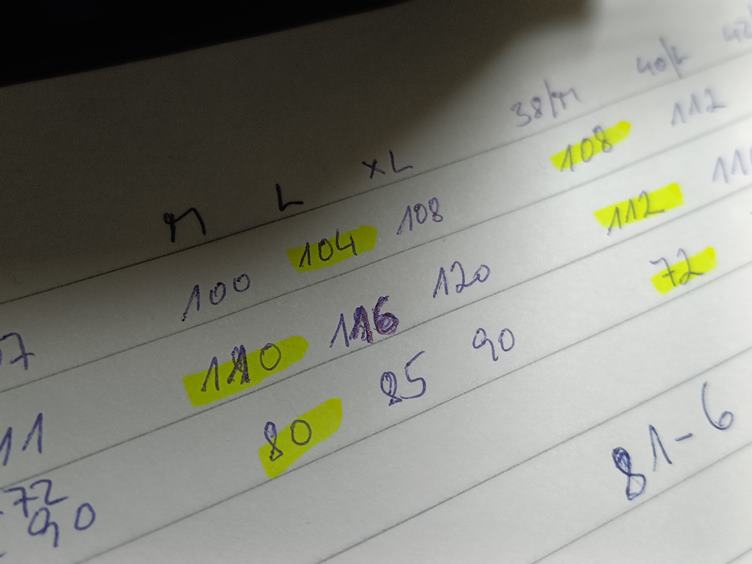 M L XL 38/M 40/L 42
100 104 108 108 112
7 110 116 120 112 11
11 80 85 90 72
72
90 81-6